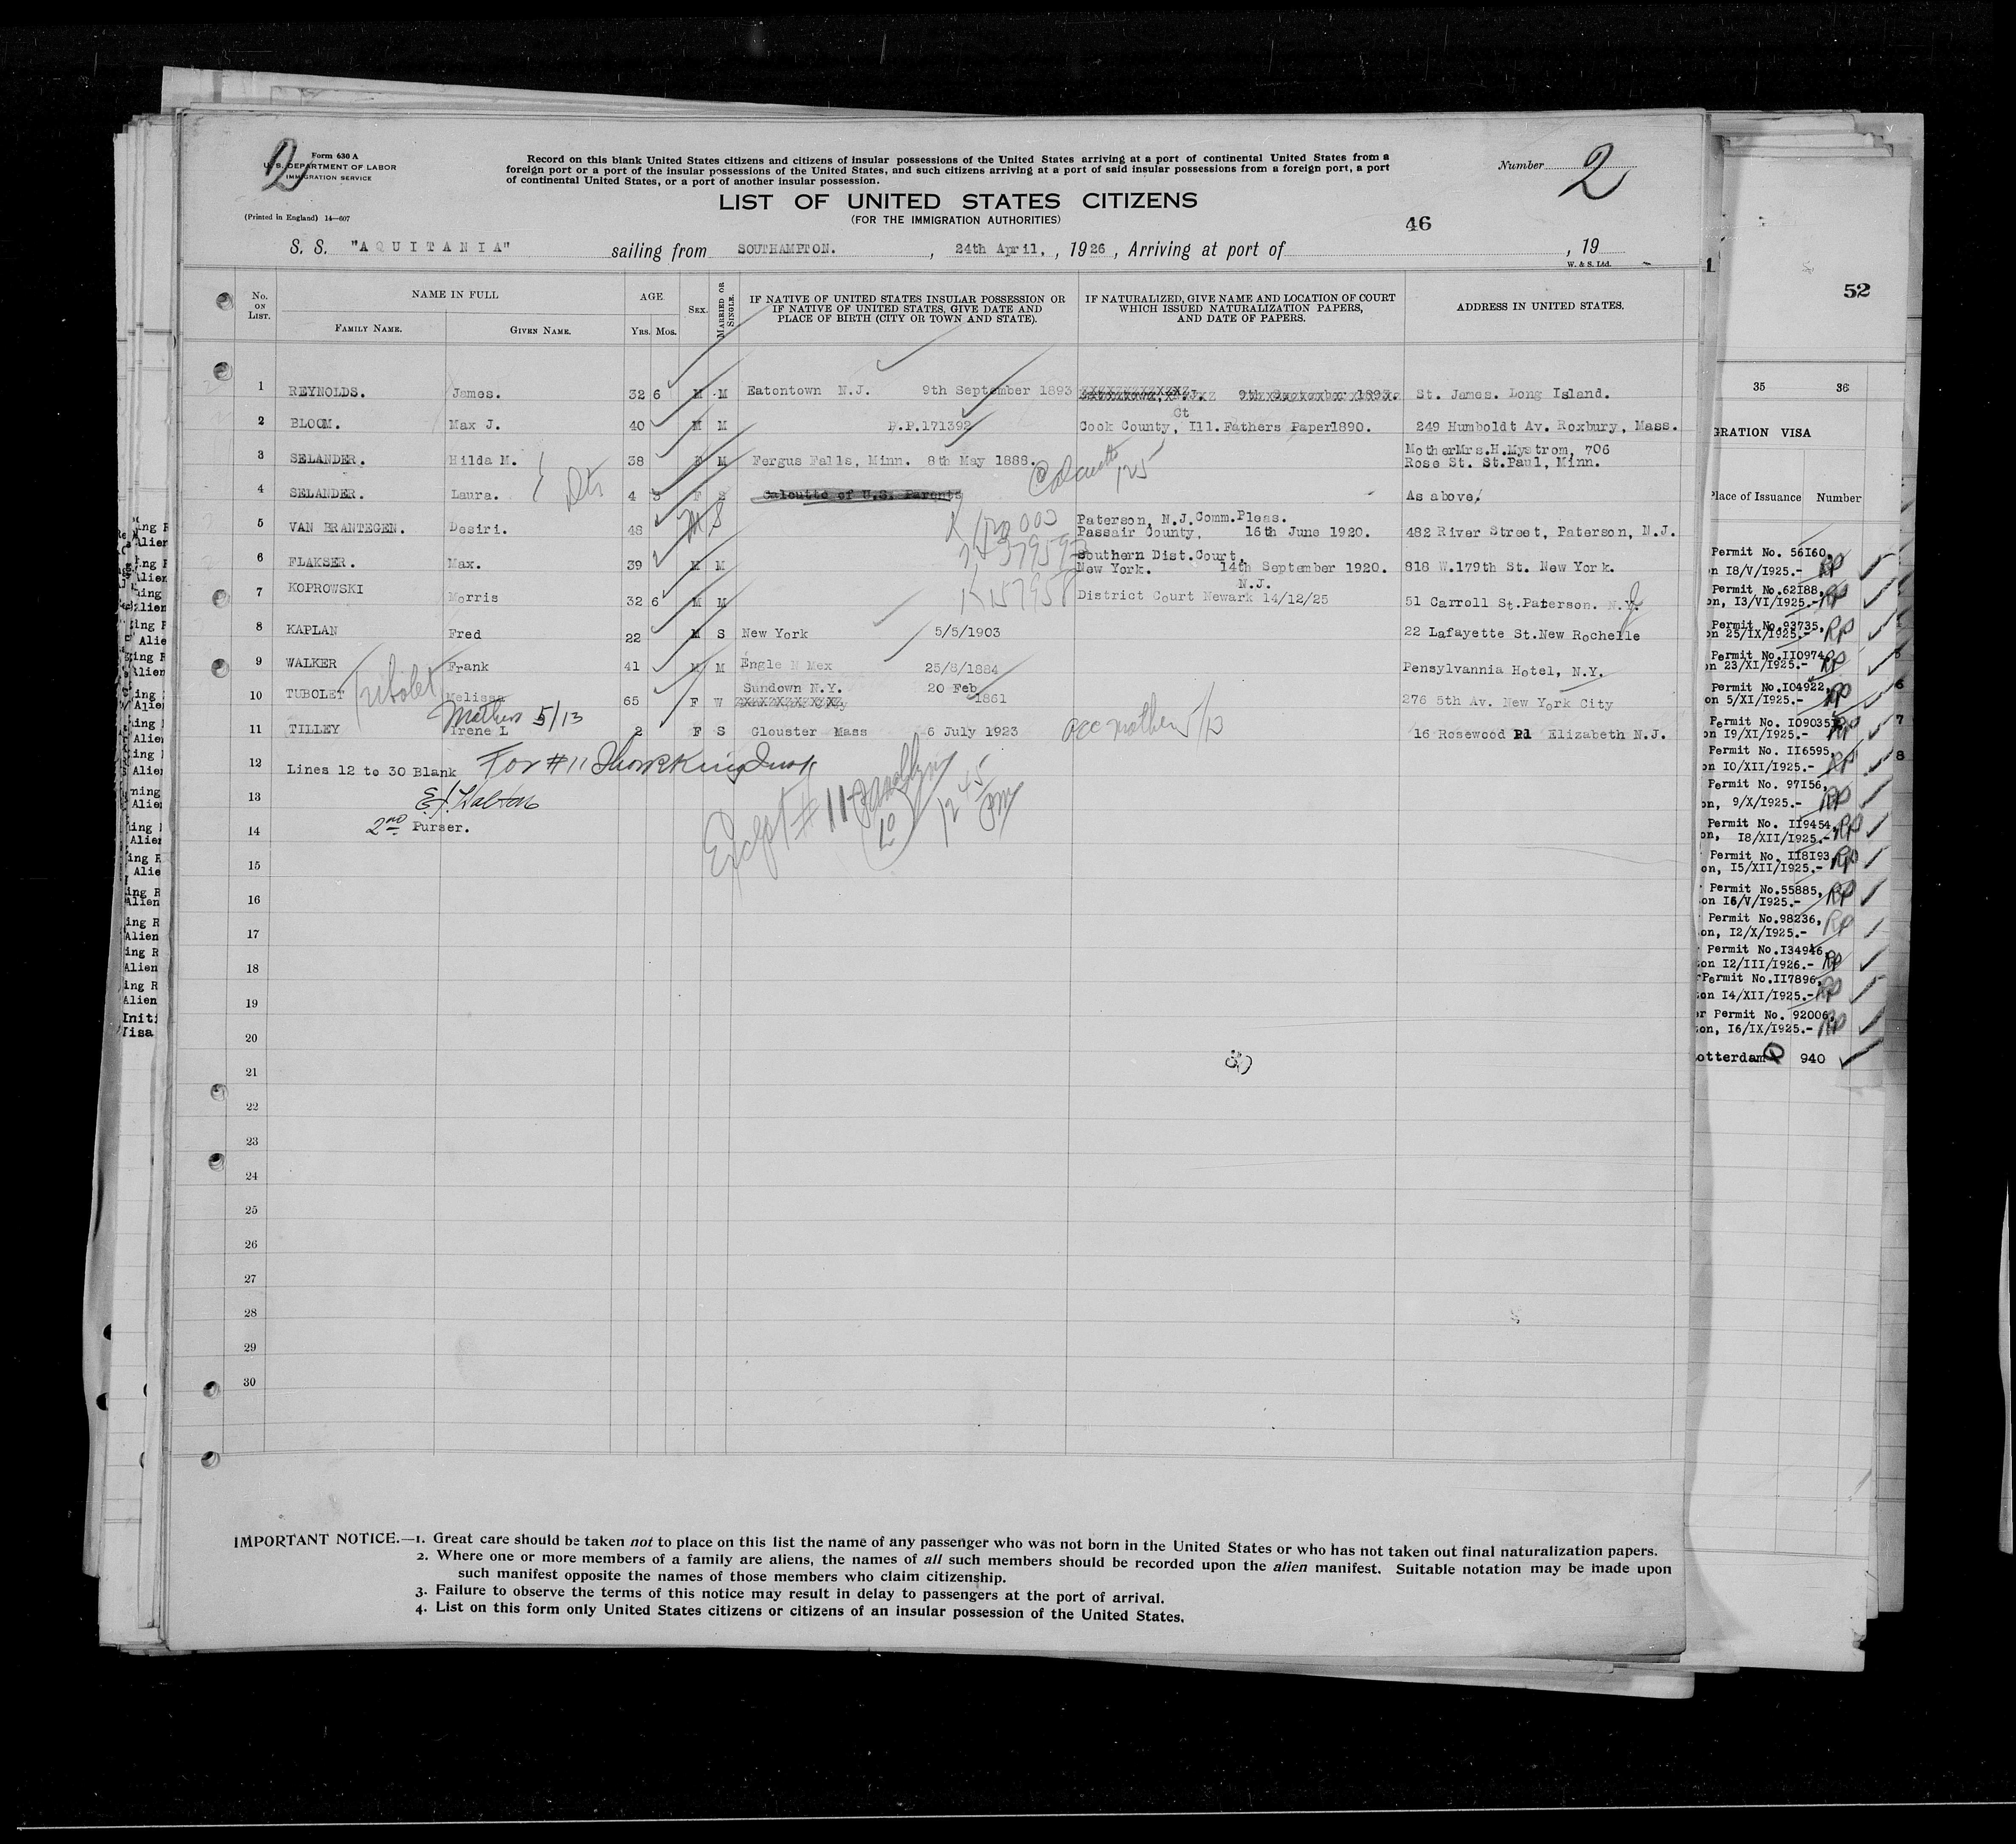 Form 630 A
U. S. DEPARTMENT OF LABOR
IMMIGRATION SERVICE
(Printed in England) 14—607
Record on this blank United States citizens and citizens of insular possessions of the United States arriving at a port of continental United States from a
foreign port or a port of the insular possessions of the United States, and such citizens arriving at a port of said insular possessions from a foreign port, a port
of continental United States, or a port of another insular possession.
Number 2
LIST OF UNITED STATES CITIZENS
(FOR THE IMMIGRATION AUTHORITIES)
46
S. S. "AQUITANIA" sailing from SOUTHAMPTON. , 24th April, , 1926 , Arriving at port of , 19
W. & S. Ltd.
No. ON LIST. NAME IN FULL FAMILY NAME. GIVEN NAME. AGE Yrs. Mos. SEX. MARRIED OR SINGLE. IF NATIVE OF UNITED STATES INSULAR POSSESSION OR IF NATIVE OF UNITED STATES, GIVE DATE AND PLACE OF BIRTH (CITY OR TOWN AND STATE). IF NATURALIZED, GIVE NAME AND LOCATION OF COURT WHICH ISSUED NATURALIZATION PAPERS, AND DATE OF PAPERS. ADDRESS IN UNITED STATES.
1 REYNOLDS. James. 32 6 M M Eatontown N.J. 9th September 1893 9th September 1893. St. James. Long Island.
2 BLOOM. Max J. 40 M M P.P.171392 Cook County, Ct Ill. Fathers Paper 1890. 249 Humboldt Av. Roxbury, Mass.
3 SELANDER. Hilda M. 38 F M Fergus Falls, Minn. 8th May 1888. Mother Mrs.H.Mystrom, 706
Rose St. St.Paul, Minn.
4 SELANDER. Laura. 4 3 F S Calcutte of U.S. Parents Calcutta 125 As above.
5 VAN BRANTEGEN. Desiri. 48 M S Paterson, N.J. Comm.Pleas.
Passair County, 16th June 1920. 482 River Street, Paterson, N.J.
6 FLAKSER. Max. 39 M M Southern Dist.Court,
New York. 14th September 1920. 818 W.179th St. New York.
7 KOPROWSKI Morris 32 6 M M K 157958 N.J.
District Court Newark 14/12/25 51 Carroll St.Paterson. N.Y.
8 KAPLAN Fred 22 M S New York 5/5/1903 22 Lafayette St.New Rochelle
9 WALKER Frank 41 M M Engle N Mex 25/8/1884 Pensylvannia Hotel, N.Y.
10 TUBOLET Melissa 65 F W Sundown N.Y. 20 Feb 1861 276 5th Av. New York City
Mathers 5/13
11 TILLEY Irene L 2 F S Clouster Mass 6 July 1923 acc mother 5/13 16 Rosewood Pl Elizabeth N.J.
12 Lines 12 to 30 Blank For #11
13
14 2nd Purser.
Except # 11
12 45 PM
15
16
17
18
19
20
21
22
23
24
25
26
27
28
29
30
IMPORTANT NOTICE.—1. Great care should be taken not to place on this list the name of any passenger who was not born in the United States or who has not taken out final naturalization papers.
2. Where one or more members of a family are aliens, the names of all such members should be recorded upon the alien manifest. Suitable notation may be made upon
such manifest opposite the names of those members who claim citizenship.
3. Failure to observe the terms of this notice may result in delay to passengers at the port of arrival.
4. List on this form only United States citizens or citizens of an insular possession of the United States.
52
35 36
GRATION VISA
Place of Issuance Number
Permit No. 56160,
on 18/V/1925.- RP
Permit No.62188,
on, 13/VI/1925.- RP
Permit No.93735,
on 25/IX/1925.- RP
Permit No.110974,
on 23/XI/1925.- RP
Permit No.104922, 6
on 5/XI/1925.- RP
Permit No. 109035, 7
on 19/XI/1925.- RP
Permit No. 116595, 8
on 10/XII/1925.- RP
Permit No. 97156,
on, 9/X/1925.- RP
Permit No. 119454,
on, 18/XII/1925.- RP
Permit No. 118193,
on, 15/XII/1925.- RP
Permit No.55885,
on 16/V/1925.- RP
Permit No.98236,
on, 12/X/1925.- RP
Permit No.134946,
on 12/III/1926.- RP
Permit No.117896,
on 14/XII/1925.- RP
Permit No. 92006,
on, 16/IX/1925.- RP
otterdam 940